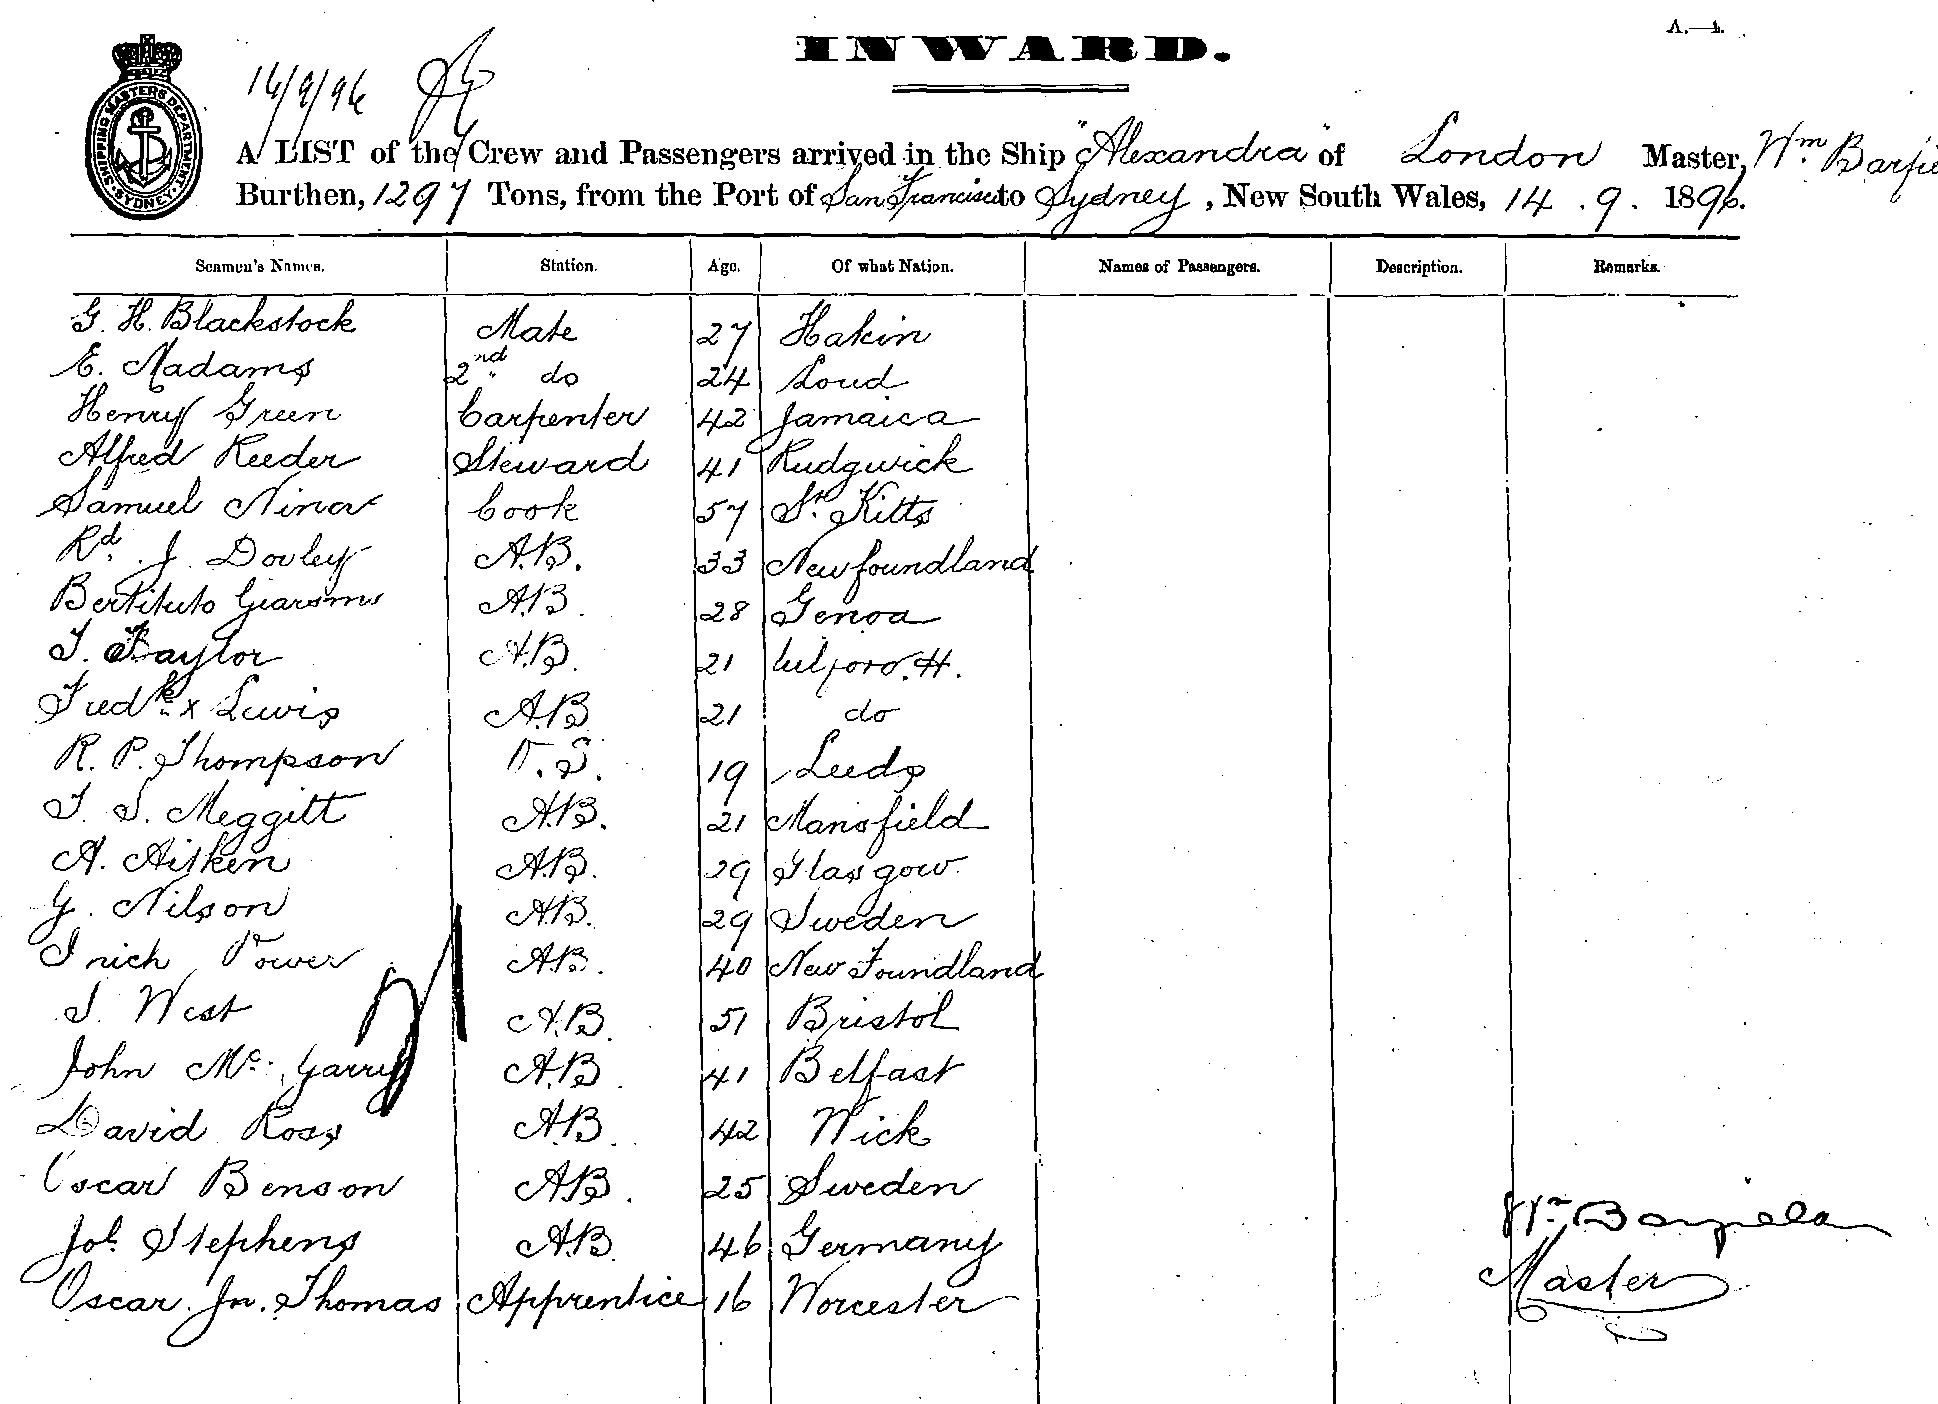 A.—1.
INWARD.
SHIPPING MASTERS DEPARTMENT. SYDNEY.
16/9/96
A LIST of the Crew and Passengers arrived in the Ship "Alexandra" of London Master, Wm Barfie
Burthen, 1297 Tons, from the Port of San Francisco to Sydney, New South Wales, 14 . 9 . 1896.
Seamen's Names. Station. Age. Of what Nation. Names of Passengers. Description. Remarks.
G. H. Blackstock Mate 27 Hakin
E. Madams 2nd do 24 Loud
Henry Green Carpenter 42 Jamaica
Alfred Reeder Steward 41 Rudgwick
Samuel Cook 57 St. Kitts
Rd. J. Dovley A.B. 33 Newfoundland
A.B. 28 Genoa
T. Taylor A.B. 21
Fredk. x Lewis A.B. 21 do
R. P. Thompson O.S. 19 Leeds
T. S. Meggitt A.B. 21 Mansfield
A. Aitken A.B. 29 Glasgow
G. Nilson A.B. 29 Sweden
Power A.B. 40 New Foundland
J. West A.B. 51 Bristol
John Mc. Garry A.B. 41 Belfast
David Ross A.B. 42 Wick
Oscar Benson A.B. 25 Sweden
Jos. Stephens A.B. 46 Germany
Oscar Jn. Thomas Apprentice 16 Worcester
Wm Barfield
Master